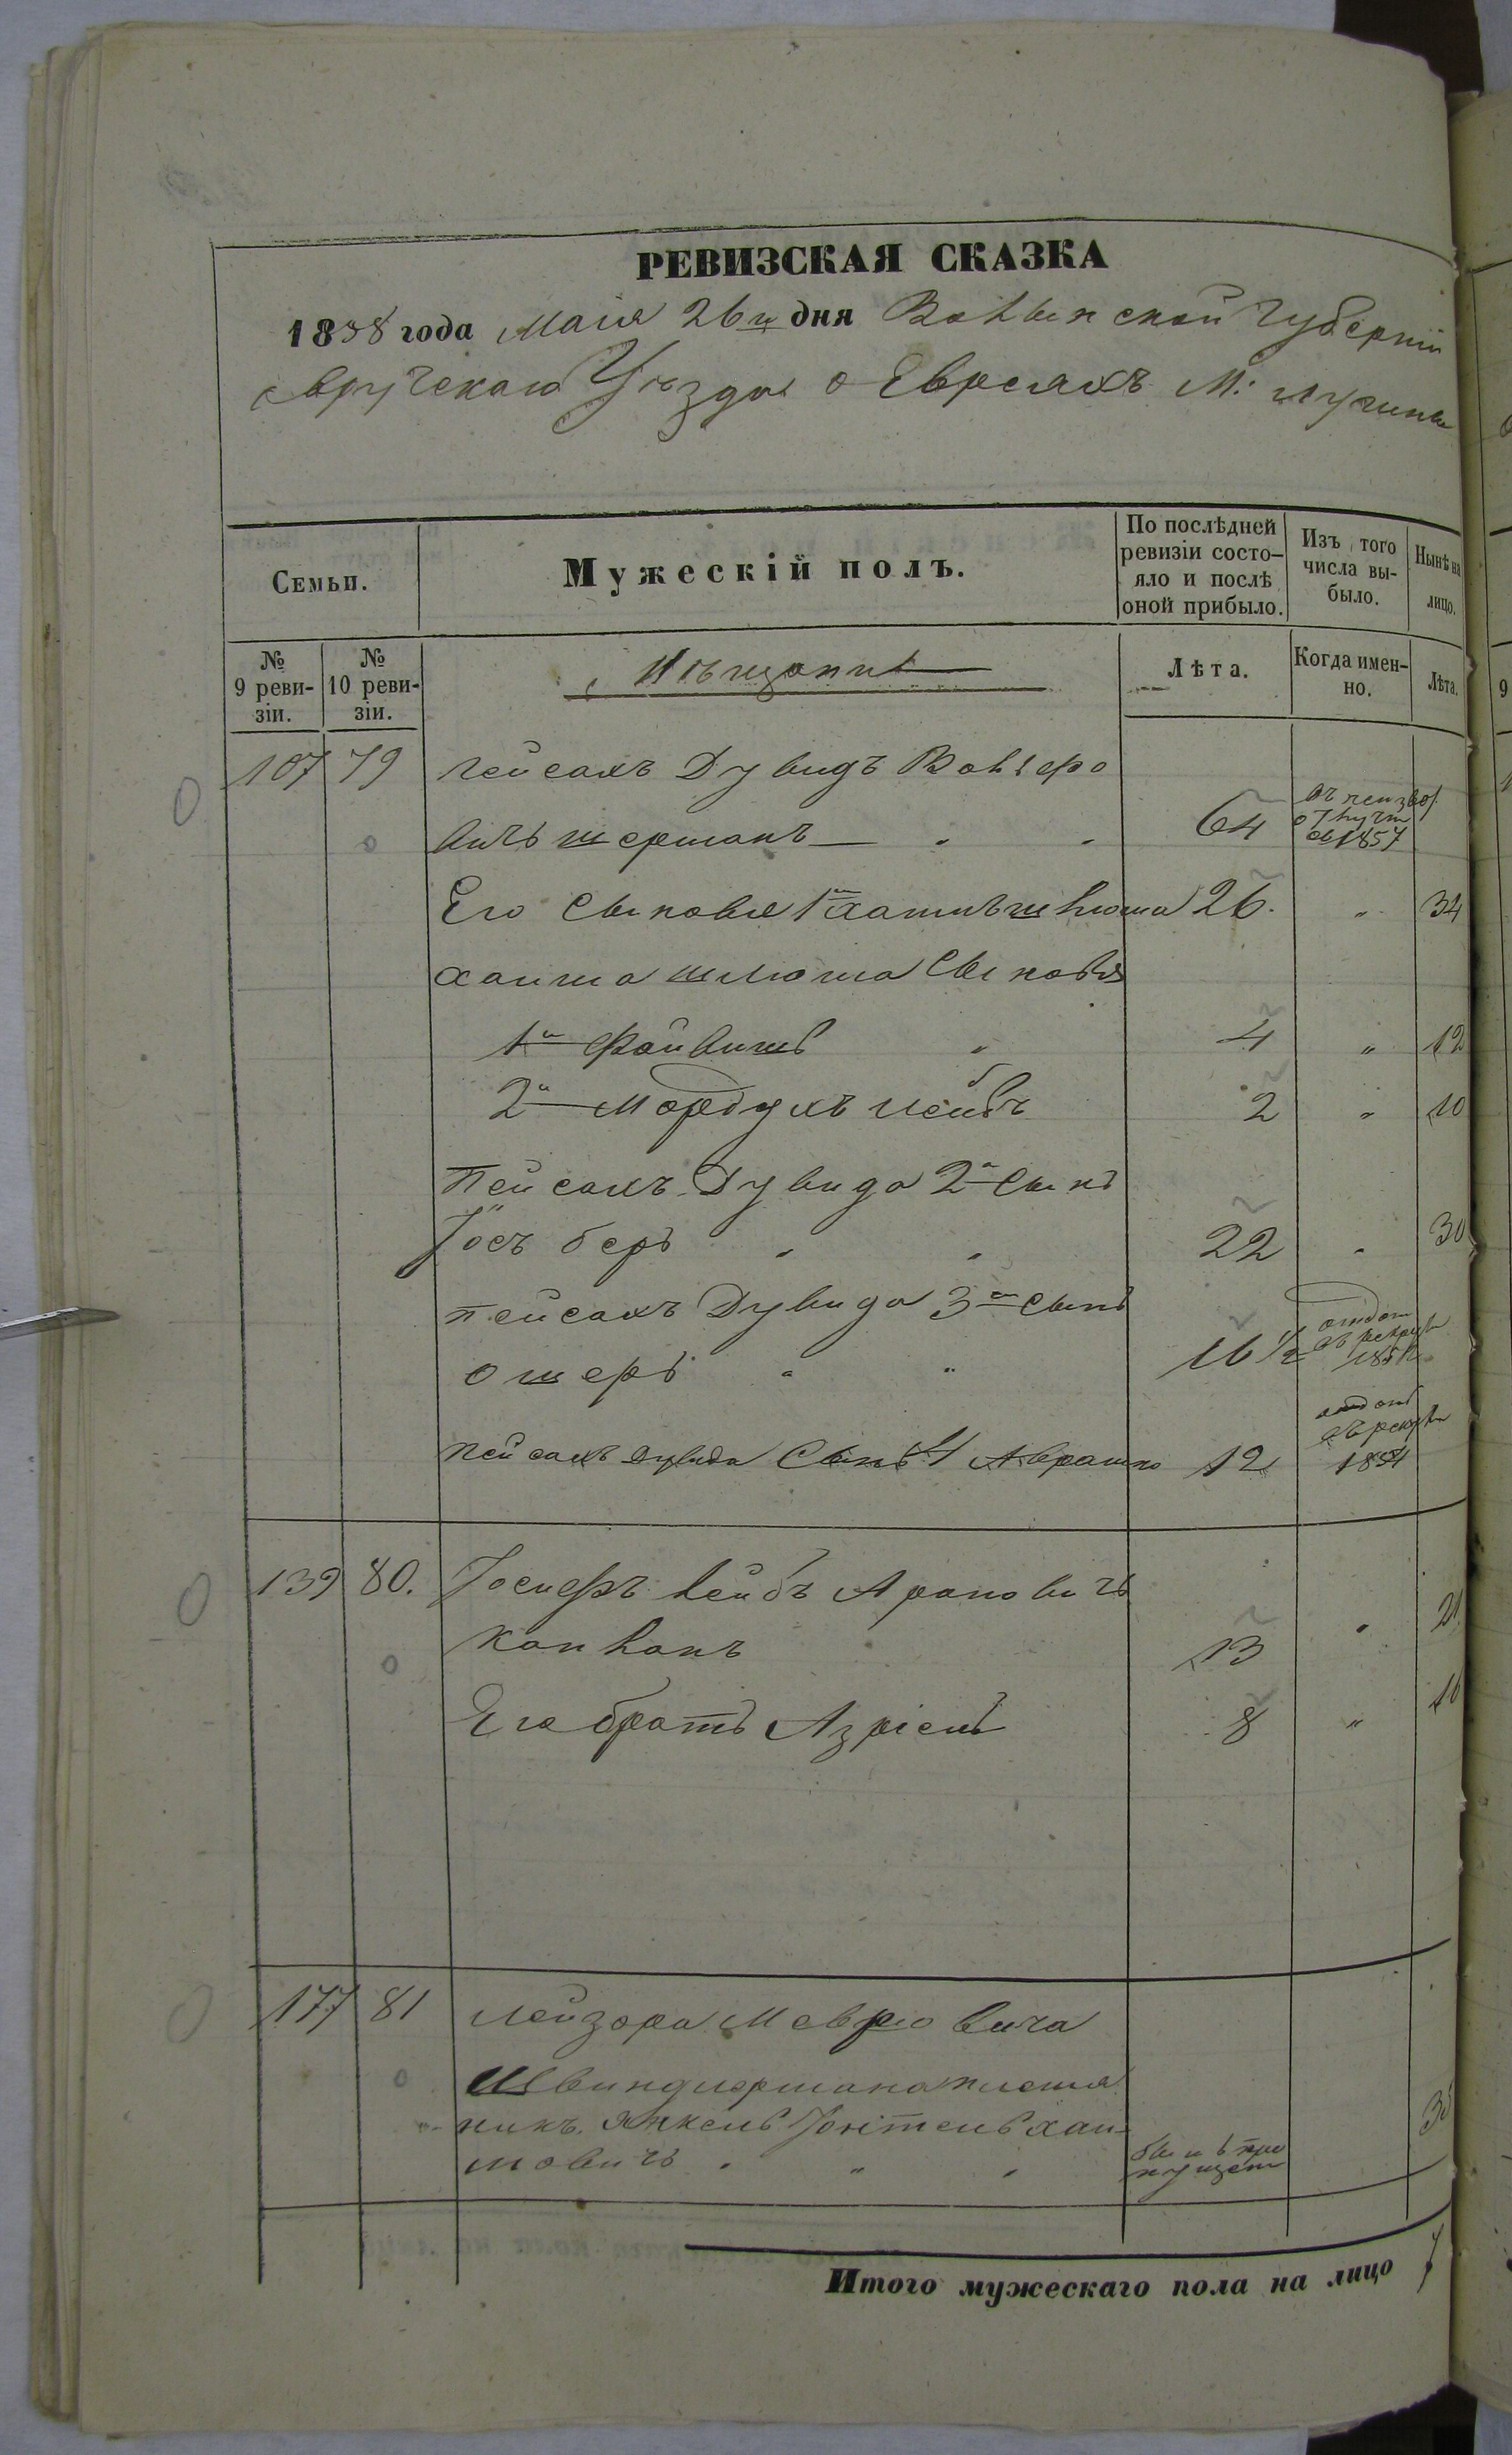 РЕВИЗСКАЯ СКАЗКА
1858 года Маія 26 дня Волынской Губерніи
овручскаго Уѣзда о Евреяхъ М: лугинъ
Семьи.
Мужескій полъ.
По послѣдней ревизіи состо-яло и послѣ оной прибыло.
Изъ того числа вы-было.
Нынѣ на лицо.
№ 9 реви-зіи.
№ 10 реви-зіи.
Мѣщанъ
Лѣта.
Когда имен-но.
Лѣта.
107 79 Пейсахъ Дувидъ Вольфо
вичъ шерманъ 64 1857
Его Сыновья 1й хаимъ шлюма 26. " 34
хаима шлюма Сыновья
1й Файвишъ " 4 " 12
2й Мордухъ лейбъ 2 " 10
Пейсахъ Дувида 2й Сынъ
Іосъ беръ " " 22 " 30
пейсахъ Дувида 3й Сынъ
ошеръ " " 16 1/2 отдан въ рекруты
пейсахъ дувида Сынъ 4 Аврамко 12 отданъ въ рекруты 1854
139 80. Іосифъ лейбъ Ароновичъ
капланъ 13 " 21
Его братъ Азріель 8 " 16
177 81 лейзора
племя
никъ. Янкель хаи-
мовичъ " " " былъ про пущен
Итого мужескаго пола на лицо 7